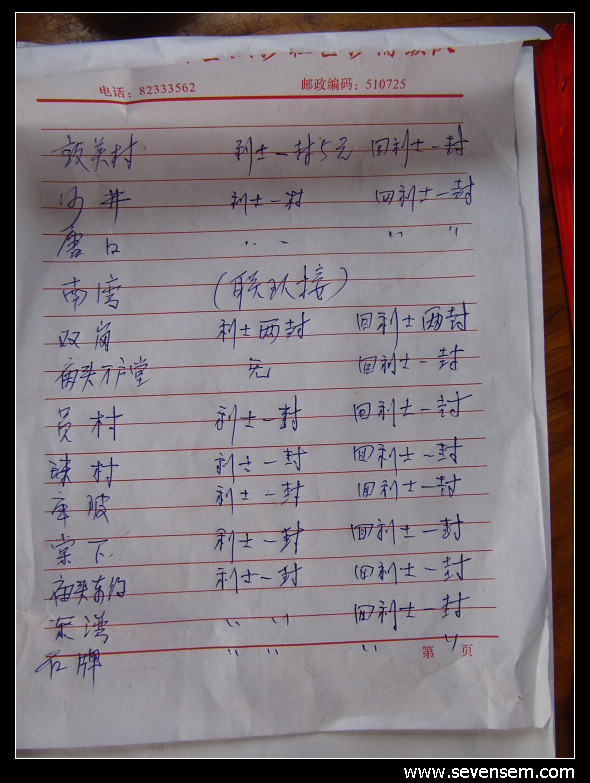 电话：82333562 邮政编码：510725
村 利士一封5元 回利士一封
沙井 利士一村 回利士一封
唐口 〃 〃 〃 〃
南湾 （联队接）
双岗 利士两封 回利士两封
庙头 堂 无 回利士一封
员村 利士一封 回利士一封
村 利士一封 回利士一封
车陂 利士一封 回利士一封
棠下 利士一封 回利士一封
庙头东约 利士一封 回利士一封
东湾 〃 〃 回利士一封
石牌 〃 〃 〃 〃
第 页
www.sevensem.com